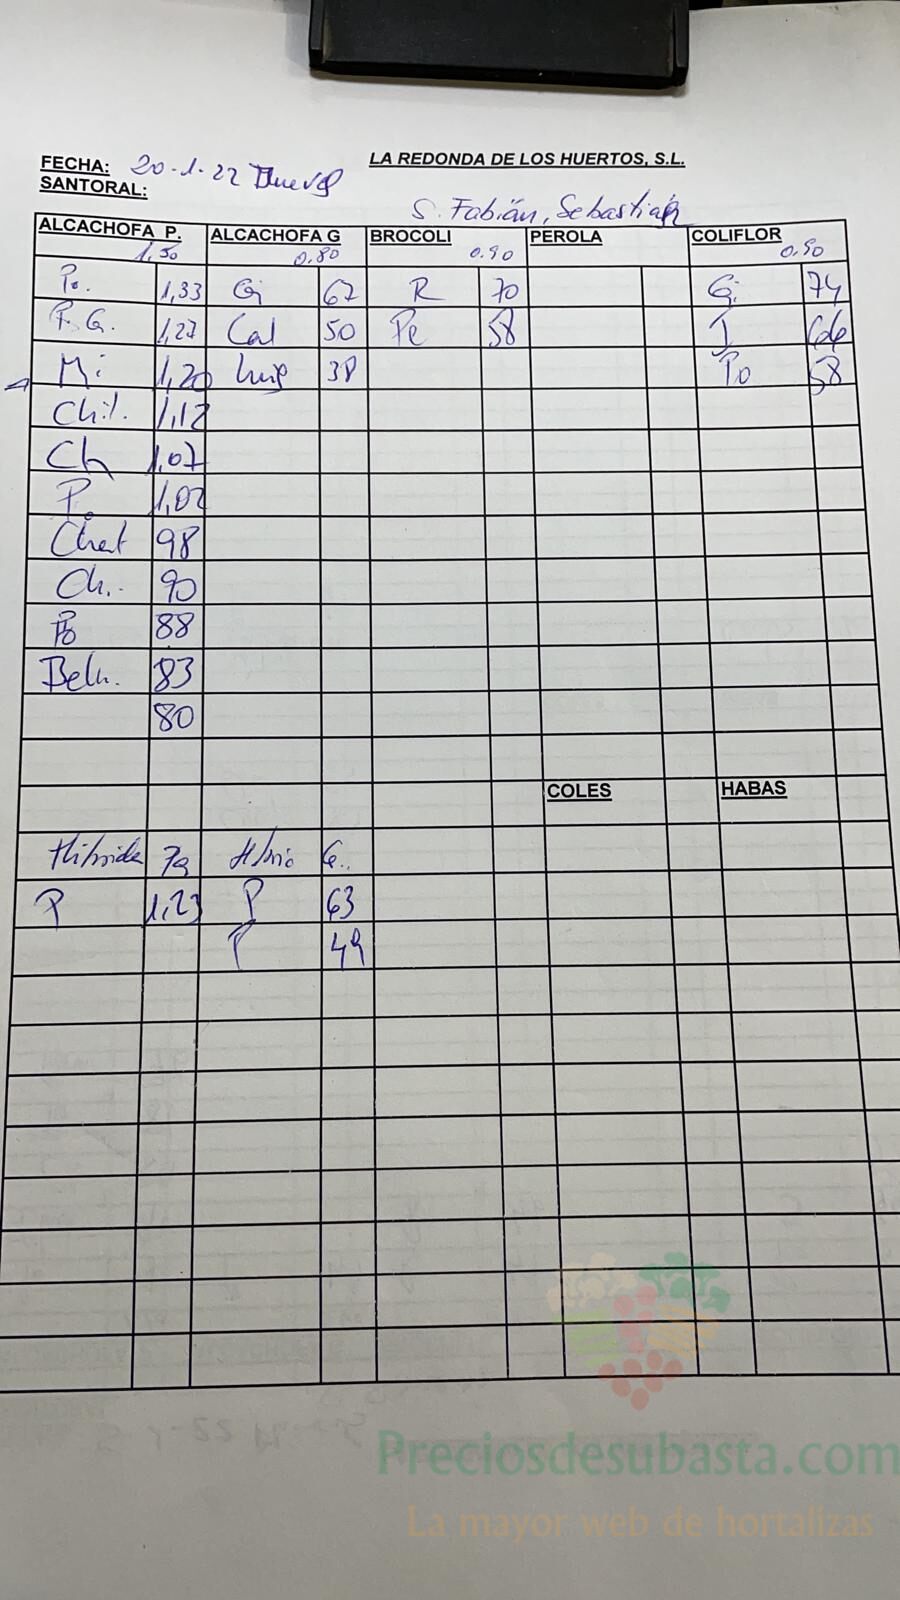 FECHA: 20-1-22 Jueves LA REDONDA DE LOS HUERTOS, S.L.
SANTORAL: S. Fabián, Sebastián
ALCACHOFA P. ALCACHOFA G BROCOLI PEROLA COLIFLOR
1,50 0.80 0.90 0.90
Po. 1,33 G 67 R 70 G. 74
P. G. 1,27 Cal 50 Pe 58 I 66
Mi 1,20 Luis 38 Po 58
Chil. 1,12
Ch 1,07
P. 1,02
Chat 98
Ch.. 90
Po 88
Beln. 83
80
COLES HABAS
Hibrida Pa G..
P 1,23 P 63
P 49
Preciosdesubasta.com
La mayor web de hortalizas